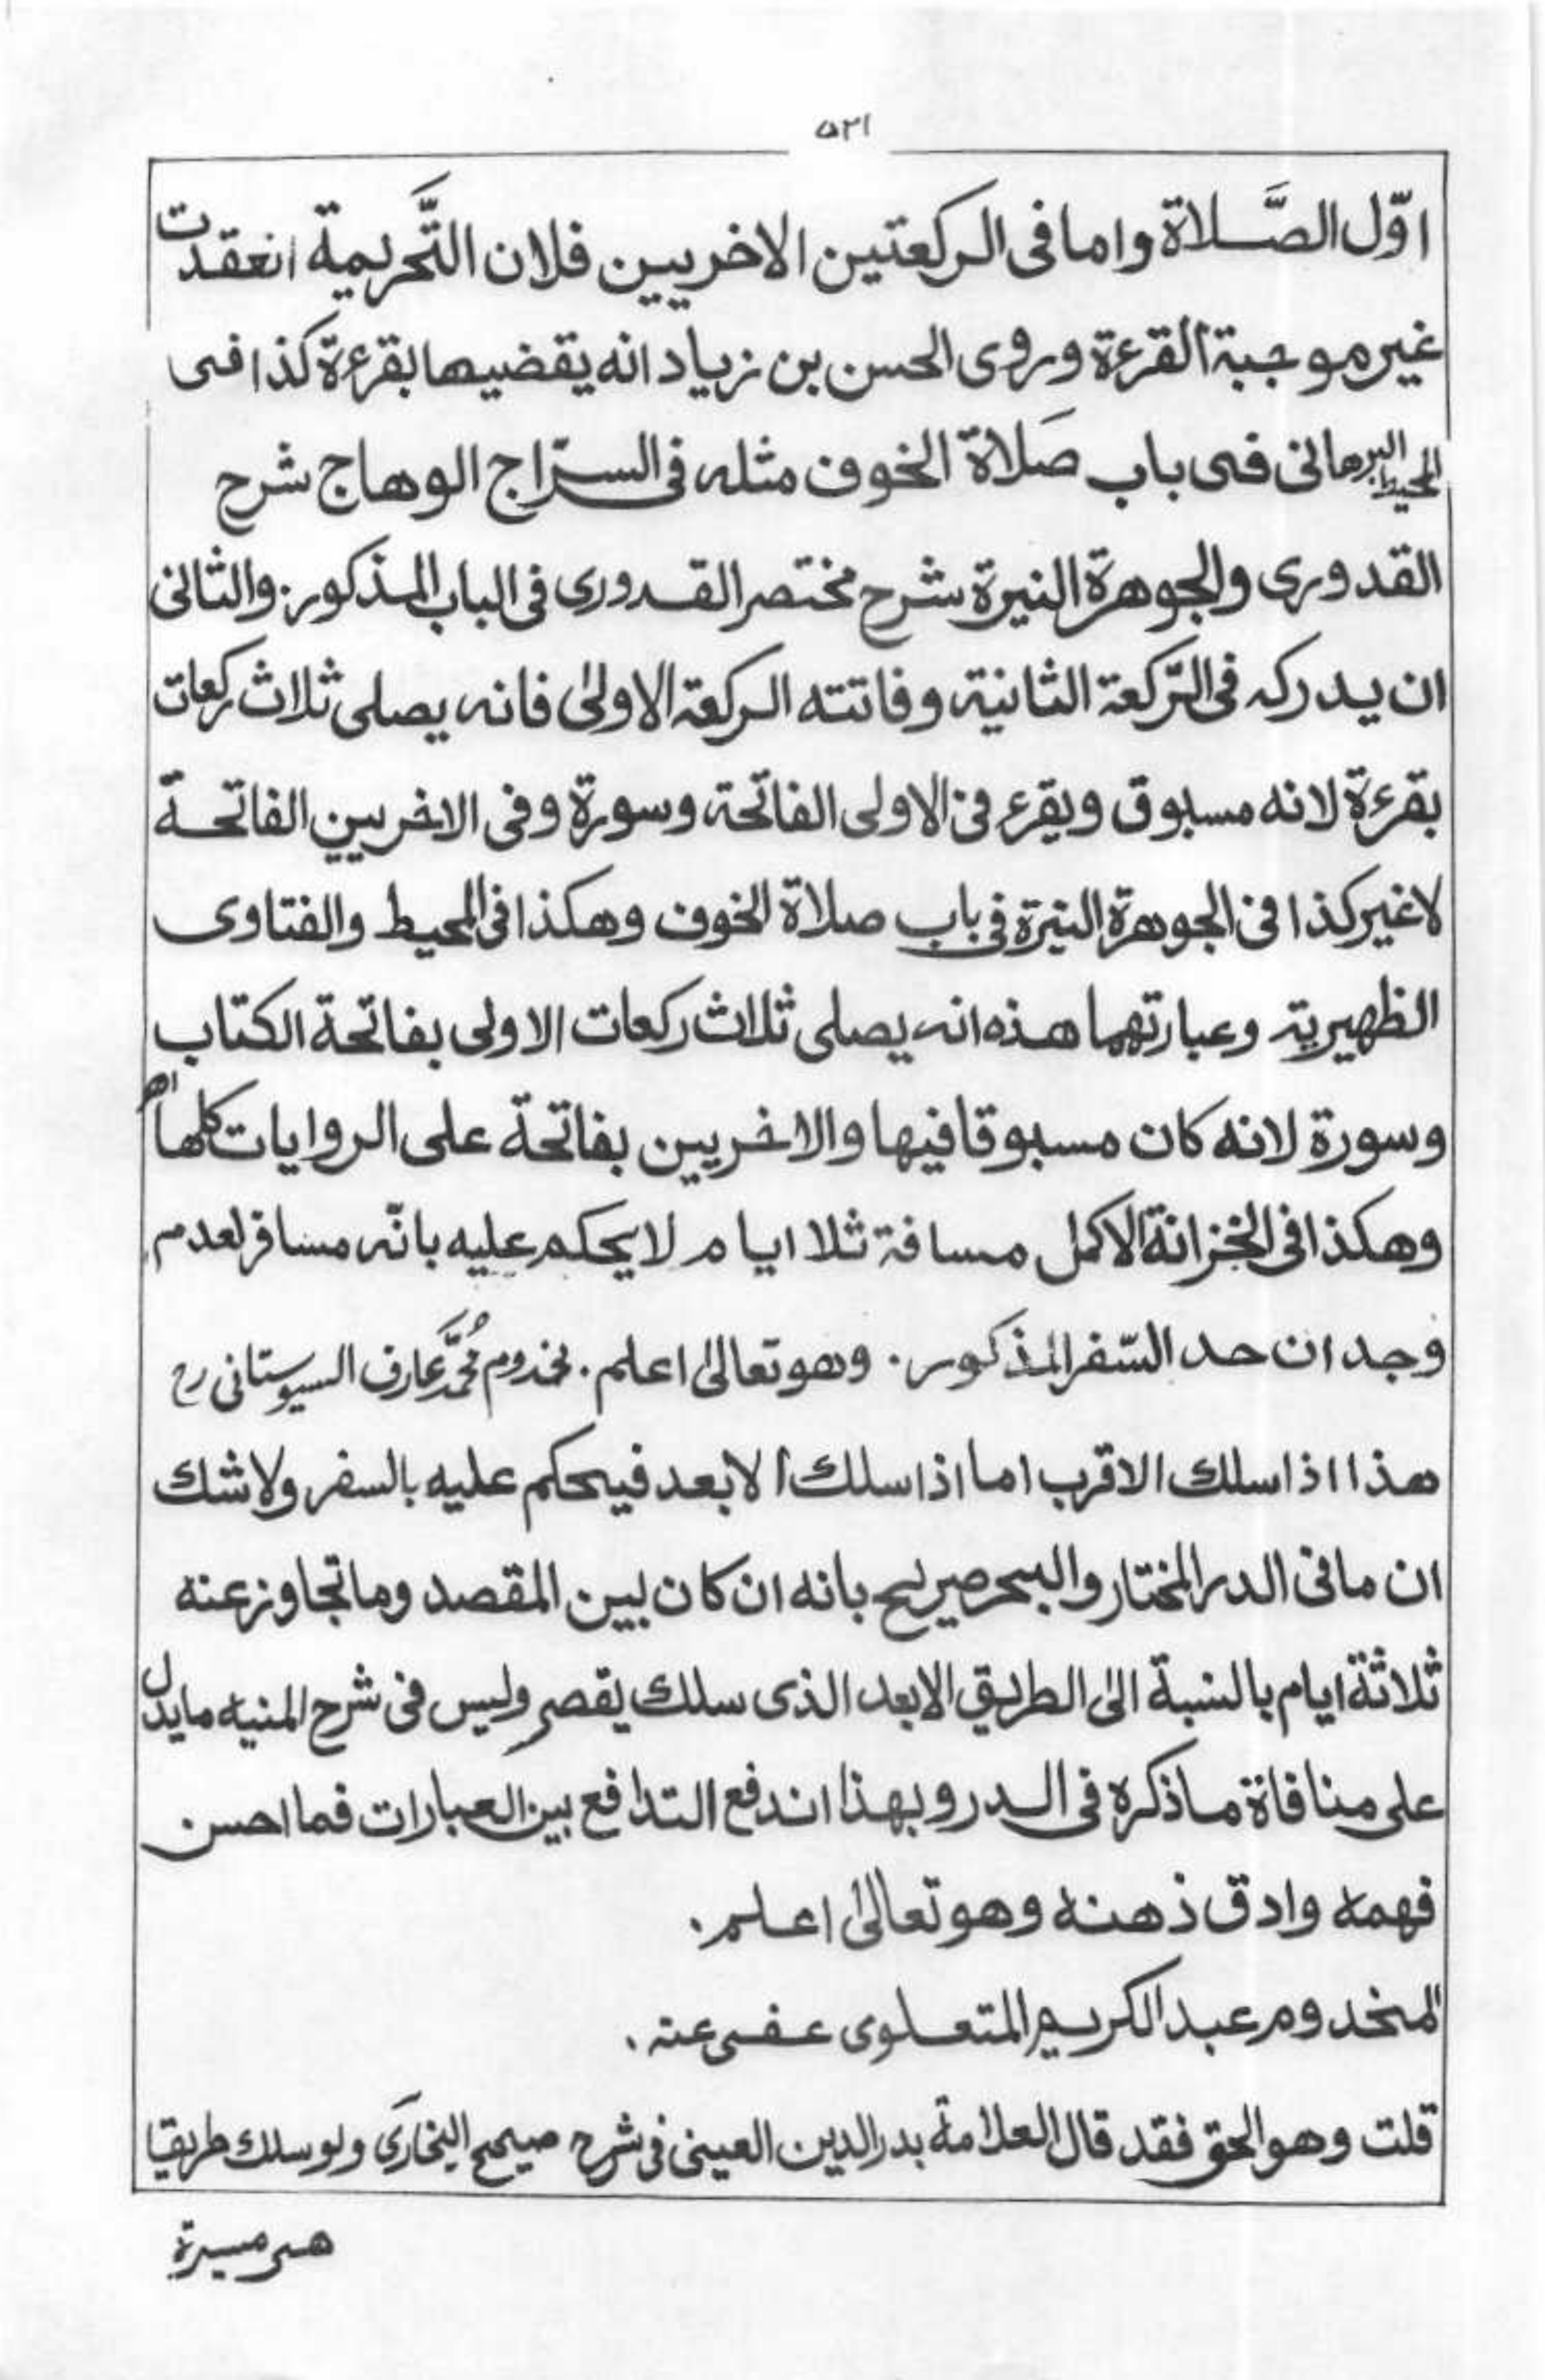 ۵۲۱
اوّل الصَّلاة واما فى الركعتين الاخريين فلان التَّحريمة انعقدت
غير موجبة القرءة وروى الحسن بن زياد انه يقضيها بقرءة كذا فى
المحيط البرهانى فى باب صَلاة الخوف مثله فى السرّاج الوهاج شرح
القدورى والجوهرة النيرة شرح مختصر القدورى فى الباب المذكور. والثانى
ان يدركه فى الرّكعة الثانية وفاتته الركعة الاولىٰ فانه يصلى ثلاث ركعات
بقرءة لانه مسبوق ويقرء فى الاولى الفاتحة وسورة وفى الاخريين الفاتحة
لاغير كذا فى الجوهرة النيرة فى باب صلاة الخوف وهكذا فى المحيط والفتاوى
الظهيرية وعبارتهما هذه انه يصلى ثلاث ركعات الاولى بفاتحة الكتاب
وسورة لانه كان مسبوقا فيها والاخريين بفاتحة على الروايات كلها اهـ
وهكذا فى الخزانة الاكمل مسافة ثلا ايام لا يحكم عليه بانّه مسافر لعدم
وجد ان حد السّفر المذكور. وهو تعالىٰ اعلم. مخدوم مُحمَّد عارف السيوستانى رح
هذا اذا سلك الاقرب اما اذا سلك الابعد فيحكم عليه بالسفر ولا شك
ان ما فى الدر المختار والبحر صريح بانه ان كان بين المقصد وما تجاوز عنه
ثلاثة ايام بالنسبة الى الطريق الابعد الذى سلك يقصر وليس فى شرح المنيه ما يدل
على منافاة ما ذكره فى الدر و بهذا اندفع التدافع بين العبارات فما احسن
فهمه وادق ذهنه وهو تعالىٰ اعلم.
المخدوم عبد الكريم المتعلوى عفى عنه.
قلت وهو الحق فقد قال العلامة بدر الدين العينى فى شرح صيحح البخارى ولو سلك طريقا
هى مسيرة